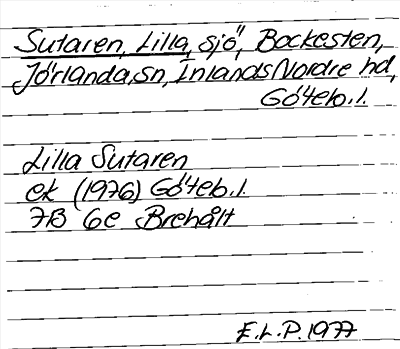 Sutaren, Lilla, sjö, Bockesten,
Jörlanda sn, Inlands Nordre hd,
Göteb. l.
Lilla Sutaren
ek (1976) Göteb. l.
7B 6e Brehält
E.L.P. 1977